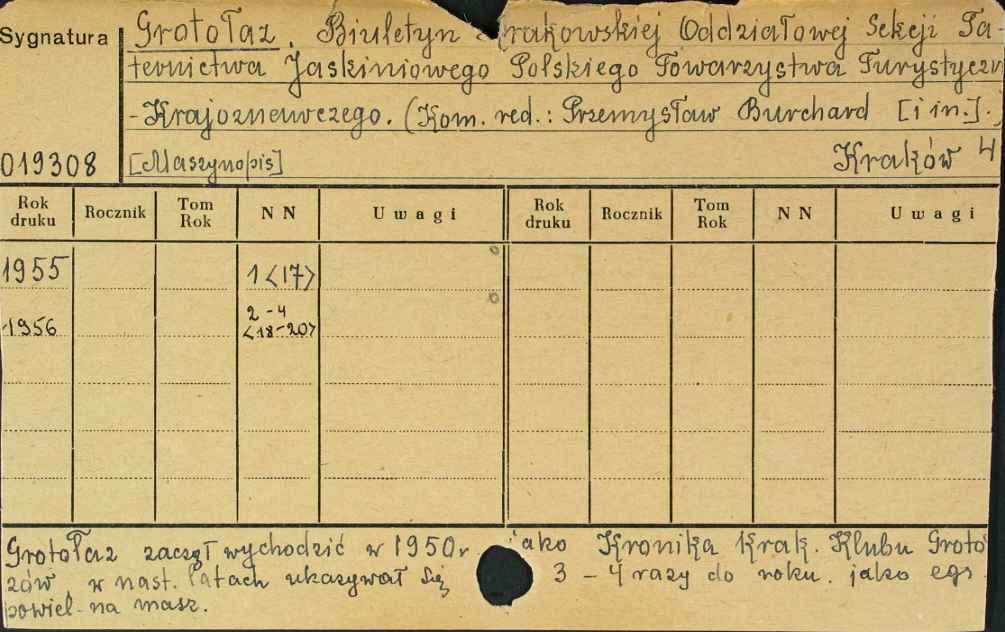 Sygnatura
Grotołaz. Biuletyn Krakowskiej Oddziałowej Sekcji Ta-
ternictwa Jaskiniowego Polskiego Towarzystwa Turystyczn
-Krajoznawczego. (Kom. red.: Przemysław Burchard [i in.].)
019308 [Maszynopis] Kraków 4
Rok druku Rocznik Tom Rok NN Uwagi Rok druku Rocznik Tom Rok NN Uwagi
1955 1<17>
1956 2-4 <18-20>
Grotołaz zaczął wychodzić w 1950r. jako Kronika Krak. Klubu Groto
zów, w nast. latach ukazywał się 3-4 razy do roku. jako egz.
powiel. na masz.